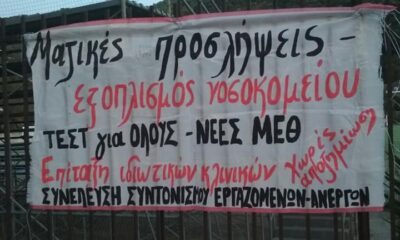 Μαζικές προσλήψεις -
εξοπλισμός νοσοκομείου
ΤΕΣΤ για ΟΛΟΥΣ - ΝΕΕΣ ΜΕΘ
Επίταξη ιδιωτικών κλινικών χωρίς αποζημίωση
ΣΥΝΕΛΕΥΣΗ ΣΥΝΤΟΝΙΣΜΟΥ ΕΡΓΑΖΟΜΕΝΩΝ-ΑΝΕΡΓΩΝ